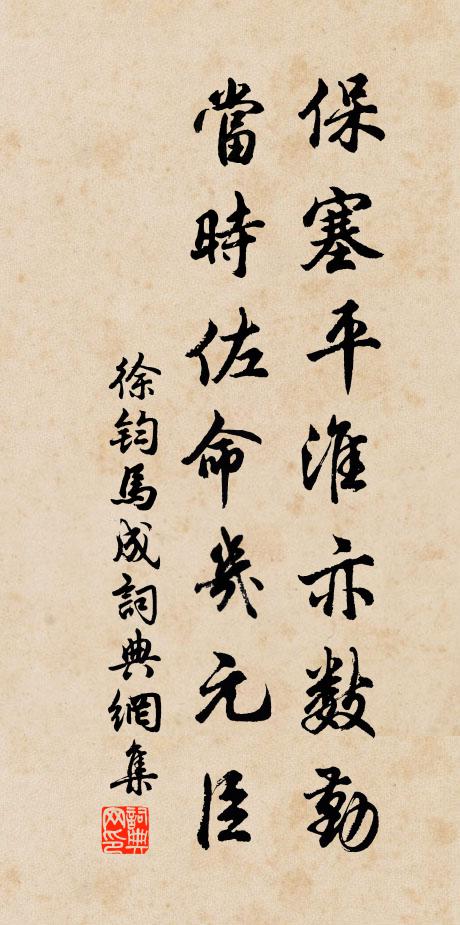 保塞平淮亦數勤
當時佐命幾元臣
徐鈞馬成詞典網集
詞典网印